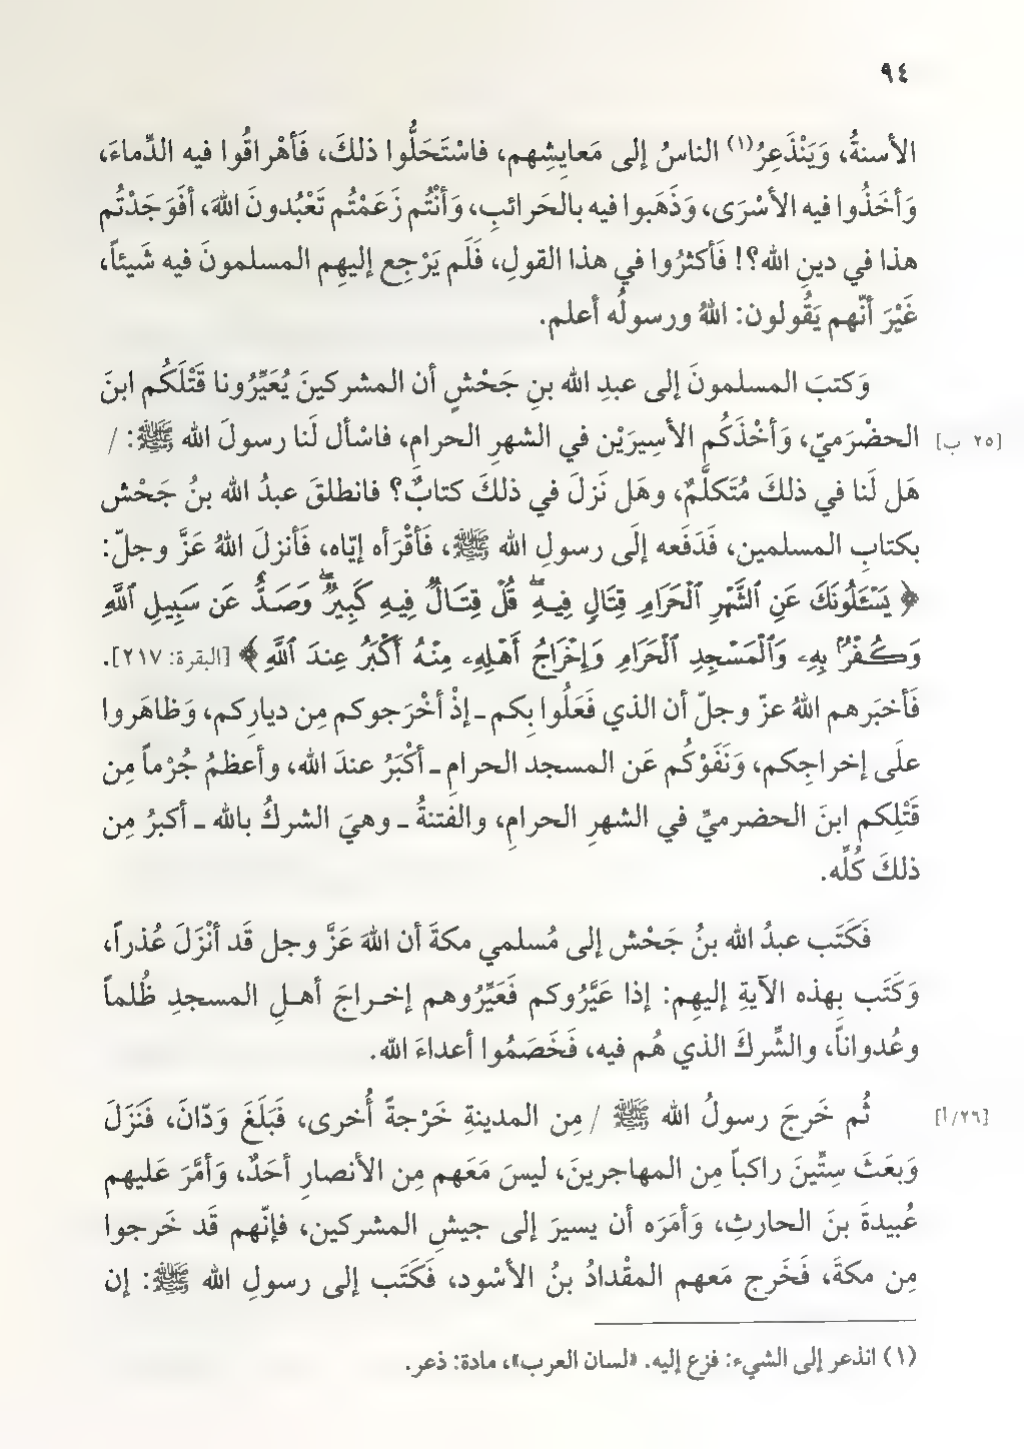 ٩٤
الأسنةُ، وَيَنْذَعِرُ(١) الناسُ إلى مَعايِشِهم، فاسْتَحَلُّوا ذلكَ، فَأهْراقُوا فيه الدِّماءَ،
وَأخَذُوا فيه الأسْرَى، وَذَهَبوا فيه بالحَرائبِ، وَأنْتُم زَعَمْتُم تَعْبُدونَ اللهَ، أفَوَجَدْتُم
هذا في دينِ الله؟! فَأكثرُوا في هذا القولِ، فَلَم يَرْجِع إليهِم المسلمونَ فيه شَيئاً،
غَيْرَ أنّهم يَقُولون: اللهُ ورسولُه أعلم.
وَكتبَ المسلمونَ إلى عبدِ الله بنِ جَحْشٍ أن المشركينَ يُعَيِّرُونا قَتْلَكُم ابنَ
[٢٥ ب] الحضْرَميّ، وَأخْذَكُم الأسِيرَيْن في الشهرِ الحرامِ، فاسْأل لَنا رسولَ الله ﷺ: /
هَل لَنا في ذلكَ مُتَكلَّمٌ، وهَل نَزلَ في ذلكَ كتابٌ؟ فانطلقَ عبدُ الله بنُ جَحْش
بكتابِ المسلمين، فَدَفَعه إلَى رسولِ الله ﷺ، فَأقْرَأه إيّاه، فَأنزلَ اللهُ عَزَّ وجلّ:
﴿ يَسْـَٔلُونَكَ عَنِ ٱلشَّهْرِ ٱلْحَرَامِ قِتَالٍ فِيهِۖ قُلْ قِتَالٌ فِيهِ كَبِيرٌۖ وَصَدٌّ عَن سَبِيلِ ٱللَّهِ
وَكُفْرٌۢ بِهِۦ وَٱلْمَسْجِدِ ٱلْحَرَامِ وَإِخْرَاجُ أَهْلِهِۦ مِنْهُ أَكْبَرُ عِندَ ٱللَّهِ ﴾ [البقرة: ٢١٧].
فَأخبَرهم اللهُ عزّ وجلّ أن الذي فَعَلُوا بِكم ـ إذْ أخْرَجوكم مِن ديارِكم، وَظاهَروا
علَى إخراجِكم، وَنَفَوْكُم عَن المسجد الحرامِ ـ أكْبَرُ عندَ الله، وأعظمُ جُرْماً مِن
قَتْلِكم ابنَ الحضرميِّ في الشهرِ الحرامِ، والفتنةُ ـ وهيَ الشركُ بالله ـ أكبرُ مِن
ذلكَ كُلِّه.
فَكَتَب عبدُ الله بنُ جَحْش إلى مُسلمي مكةَ أن اللهَ عَزَّ وجل قَد أنْزَلَ عُذراً،
وَكَتَب بِهذه الآيةِ إليهِم: إذا عَيَّرُوكم فَعَيِّرُوهم إخـراجَ أهـلِ المسجدِ ظُلماً
وعُدواناً، والشِّركَ الذي هُم فيه، فَخَصَمُوا أعداءَ الله.
[٢٦/أ] ثُم خَرجَ رسولُ الله ﷺ / مِن المدينةِ خَرْجةً أُخرى، فَبَلَغَ وَدّانَ، فَنَزَلَ
وَبعَثَ سِتِّينَ راكباً مِن المهاجرينَ، ليسَ مَعَهم مِن الأنصارِ أحَدٌ، وَأمَّرَ عَليهم
عُبيدةَ بنَ الحارثِ، وَأمَرَه أن يسيرَ إلى جيشِ المشركين، فإنّهم قَد خَرجوا
مِن مكةَ، فَخَرج مَعهم المقْدادُ بنُ الأسْود، فَكَتَب إلى رسولِ الله ﷺ: إن
(١) انذعر إلى الشيء: فزع إليه. «لسان العرب»، مادة: ذعر.